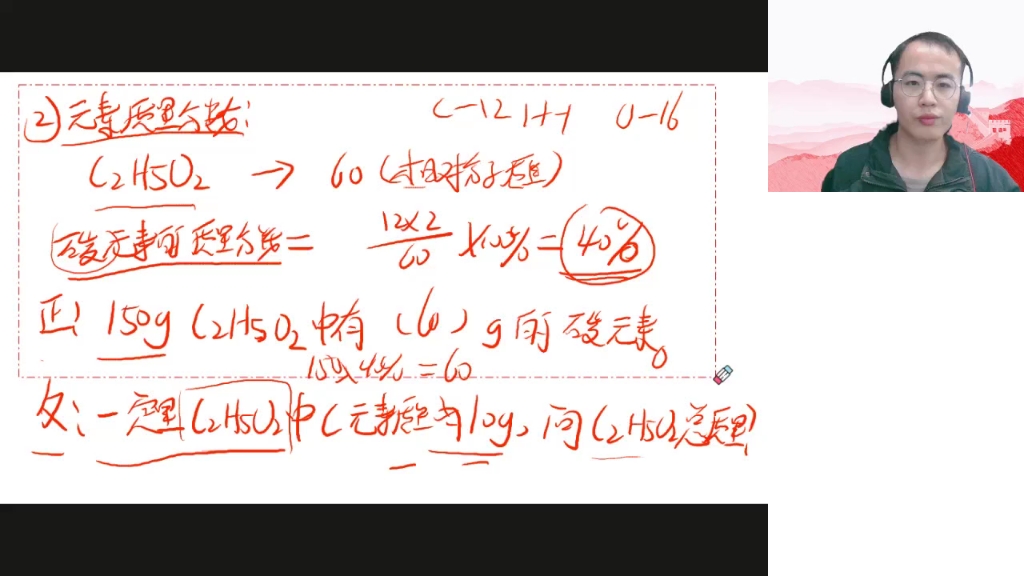 ② 元素质量分数: C-12 H-1 O-16
C2H5O2 → 60 (相对分子质量)
碳元素的质量分数 = 12×2/60 ×100% = 40%
正: 150g C2H5O2 中有 (60) g 的碳元素。
150×40% = 60
反: 一定量 C2H5O2 中 C 元素质量为 10g, 问 C2H5O2 总质量